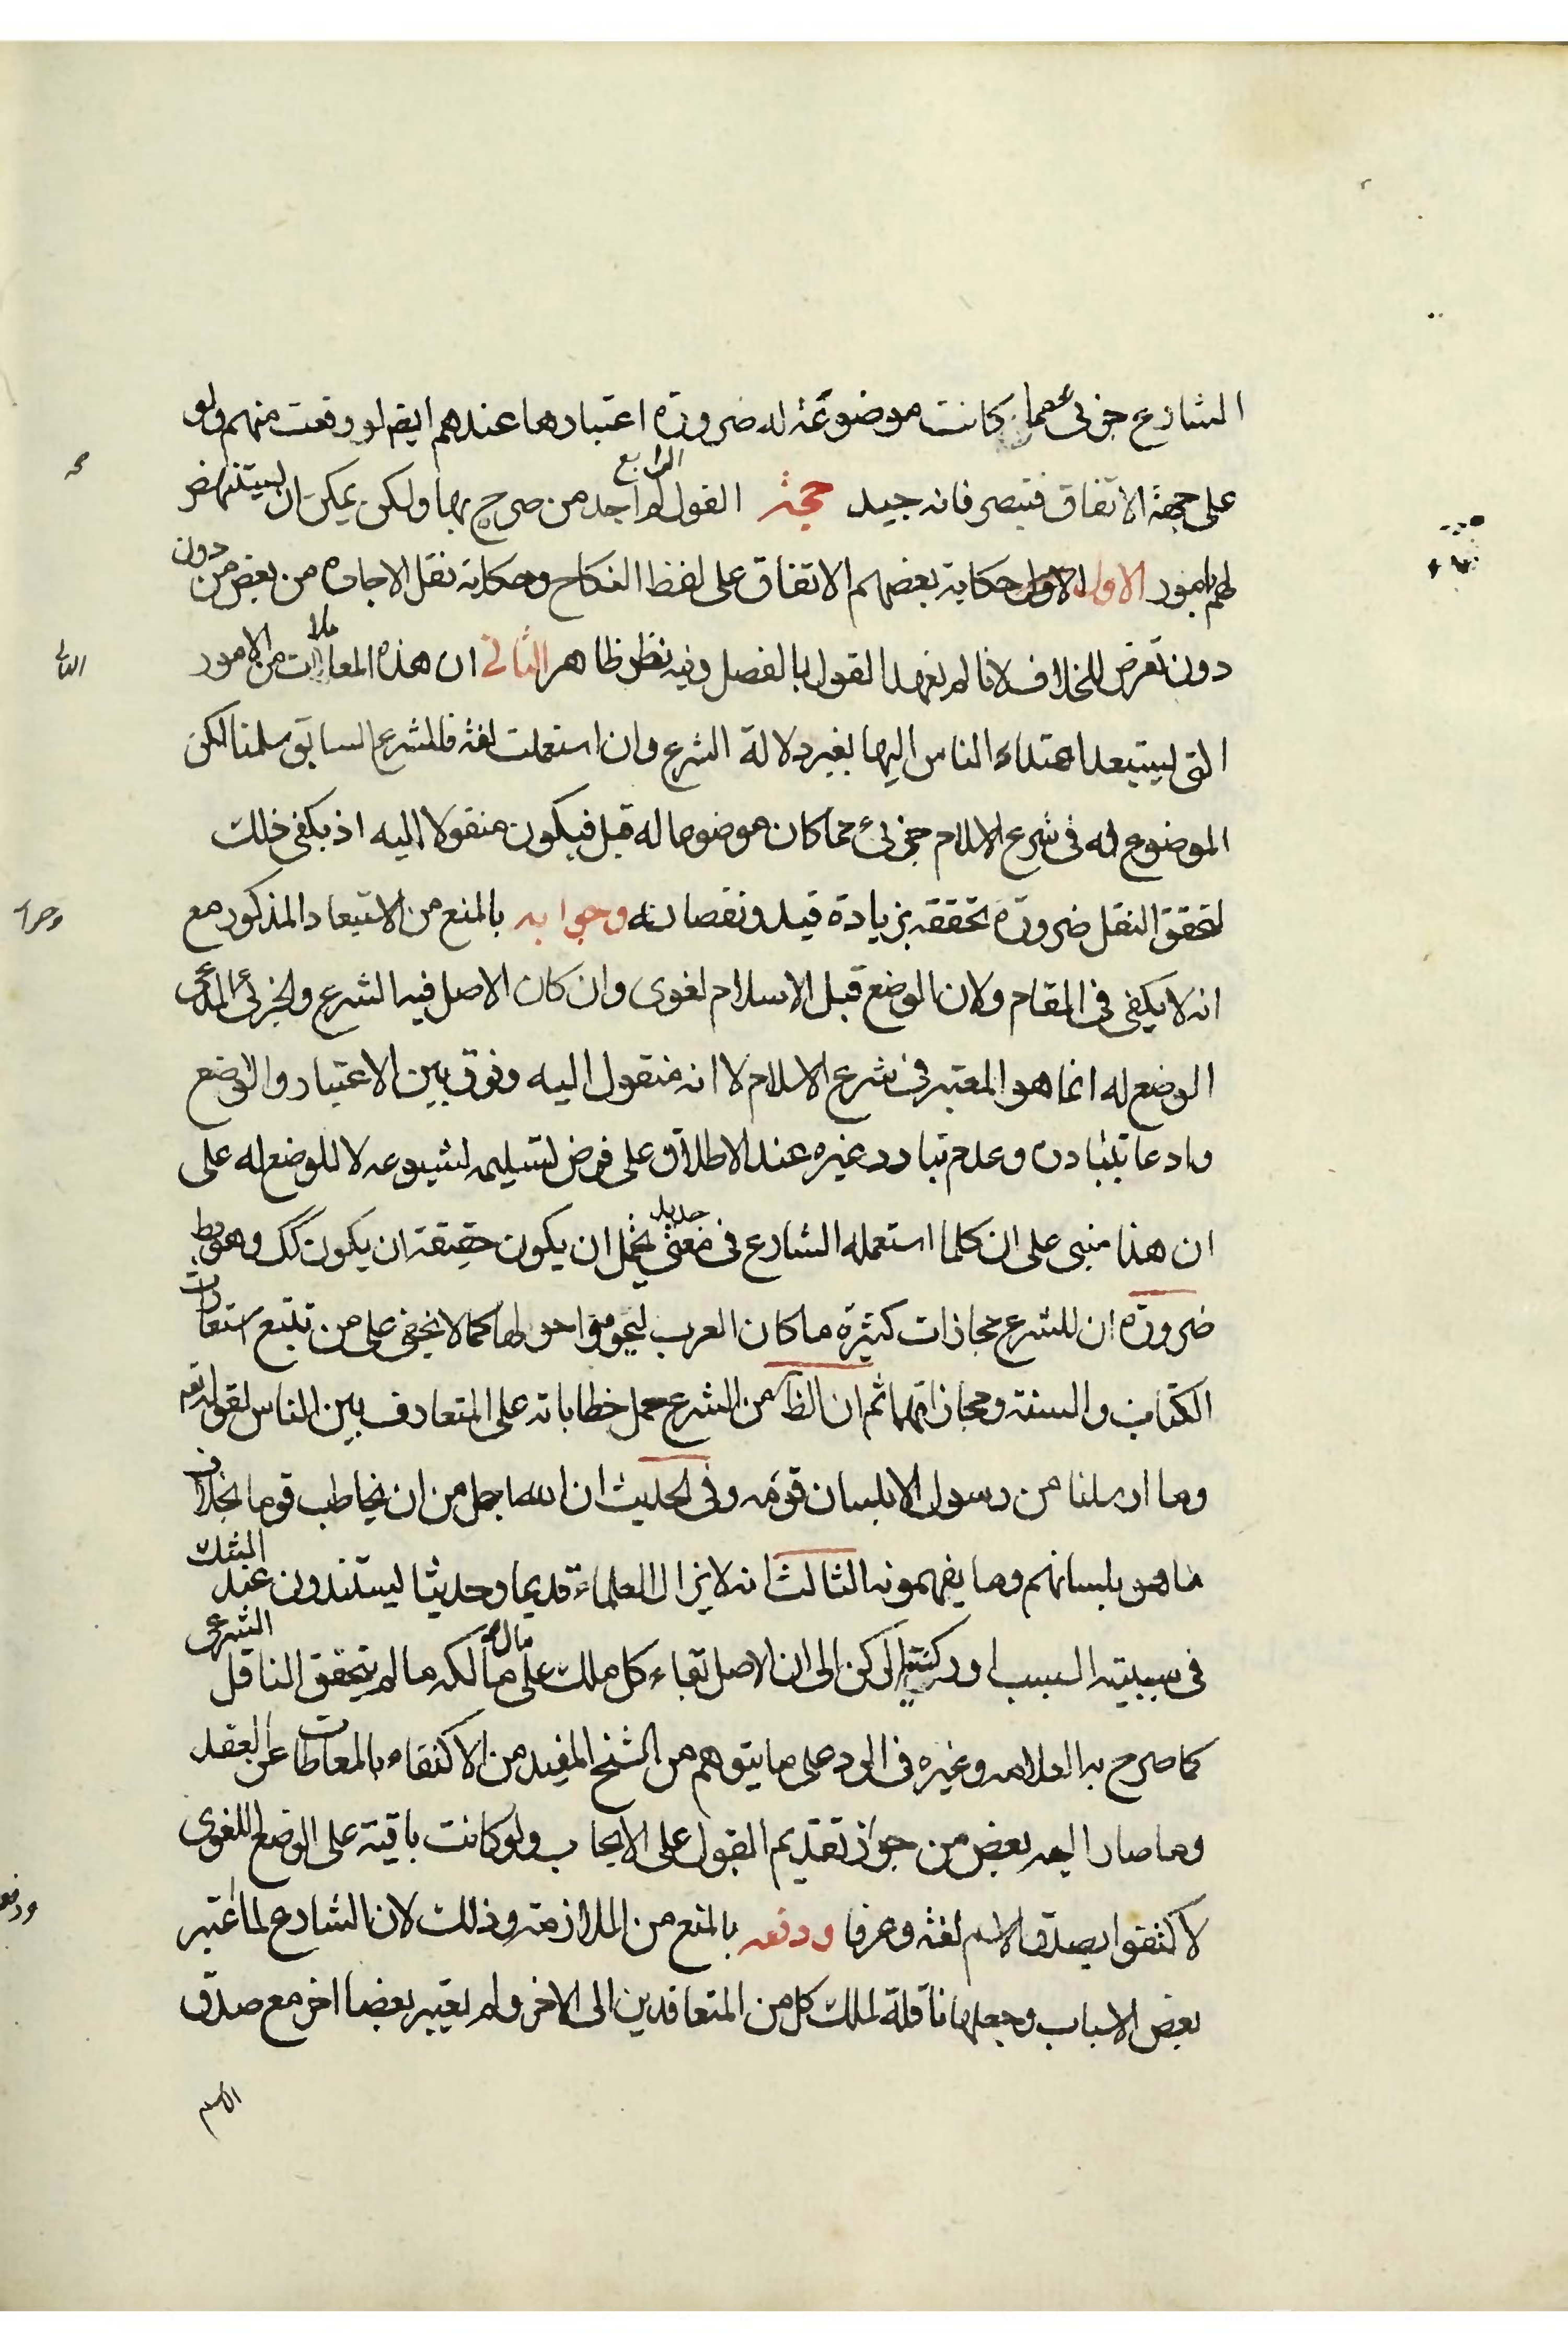 الشارع جزئى مما كانت موضوعة له ضرورة اعتبارها عندهم ايضم لو وقعت منهم ولو
على جهة الاتفاق فتبصر فانه جيد حجة القول الرابع لم اجد من صرح بها ولكن يمكن ان يستنهض
لهم بامور الاول الاول حكاية بعضهم الاتفاق على لفظ النكاح وحكاية نقل الاجارة من بعض من دون
دون تعرض للخلاف لانا لم نعهد القول بالفصل وفيه نظر ظاهر الثانى ان هذه المعاملات من الامور
التى يستبعد اهتداء الناس اليها بغير دلالة الشرع وان استعملت لغة فللشرع السابق سلمنا لكن
الموضوع له فى شرع الاسلام جزئى مما كان موضوعا له قبل فيكون منقولا اليه اذ يكفى ذلك
لتحقق النقل ضرورة تحققه بزيادة قيد ونقصانه وجوابه بالمنع من الاستبعاد المذكور مع
انه لا يكفى فى المقام ولان الوضع قبل الاسلام لغوى وان كان الاصل فيه الشرع والجزئى المدعى
الوضع له انما هو المعتبر فى شرع الاسلام لا انه منقول اليه وفرق بين الاعتبار والوضع
وادعا تبادره وعدم تبادر غيره عند الاطلاق على فرض تسليمه لشيوعه لا للوضع له على
ان هذا مبنى على ان كلما استعمله الشارع فى معنى جديد يحتمل ان يكون حقيقة ان يكون كك وهو بط
ضرورة ان للشرع مجازات كثيرة ما كان العرب يحوموا حولها كما لا يخفى على من تتبع استعارات
الكتاب والسنة ومجازاتهما ثم ان الظ من الشرع حمل خطاباته على المتعارف بين الناس لقوله تعم
وما ارسلنا من رسول الا بلسان قومه وفى الحديث ان الله اجل من ان يخاطب قوما بخلاف
ما هو بلسانهم وما يفهمونه الثالث انه لا يزال العلماء قديما وحديثا يستندون عند الشك
فى سببية السبب او ركنية الركن الى ان الاصل بقاء كل ملك على مالكه ما لم يتحقق الناقل الشرعى
كما صرح به العلامه وغيره فى الرد على ما يتوهم من الشيخ المفيد من الاكتفاء بالمعاطات عن العقد
وما صار اليه بعض من جواز تقديم القبول على الايجاب ولو كانت باقية على الوضع اللغوى
لاكتفوا بصدق الاسم لغة وعرفا ودفعه بالمنع من الملازمة وذلك لان الشارع لما اعتبر
بعض الاسباب وجعلها ناقلة لملك كل من المتعاقدين الى الاخر ولم يعتبر بعضا اخر مع صدق
الاسم